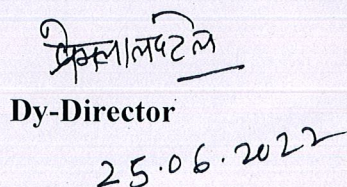 प्रेमलाल पटेल
Dy-Director
25.06.2022